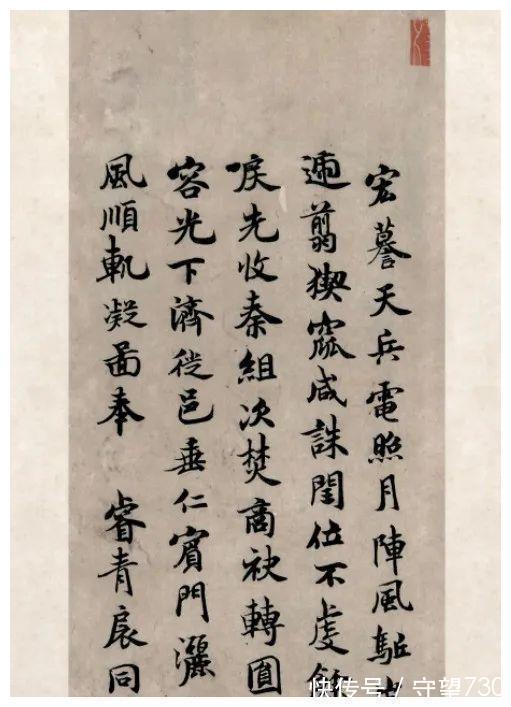 宏謩天兵電照月陣風駈
遄翦猰窳咸誅閏位不虔
唳先收秦組次焚商袂轉圓
容光下濟徙邑垂仁賓門灑
風順軌凝畵奉 睿青扆同
快传号 / 守望730